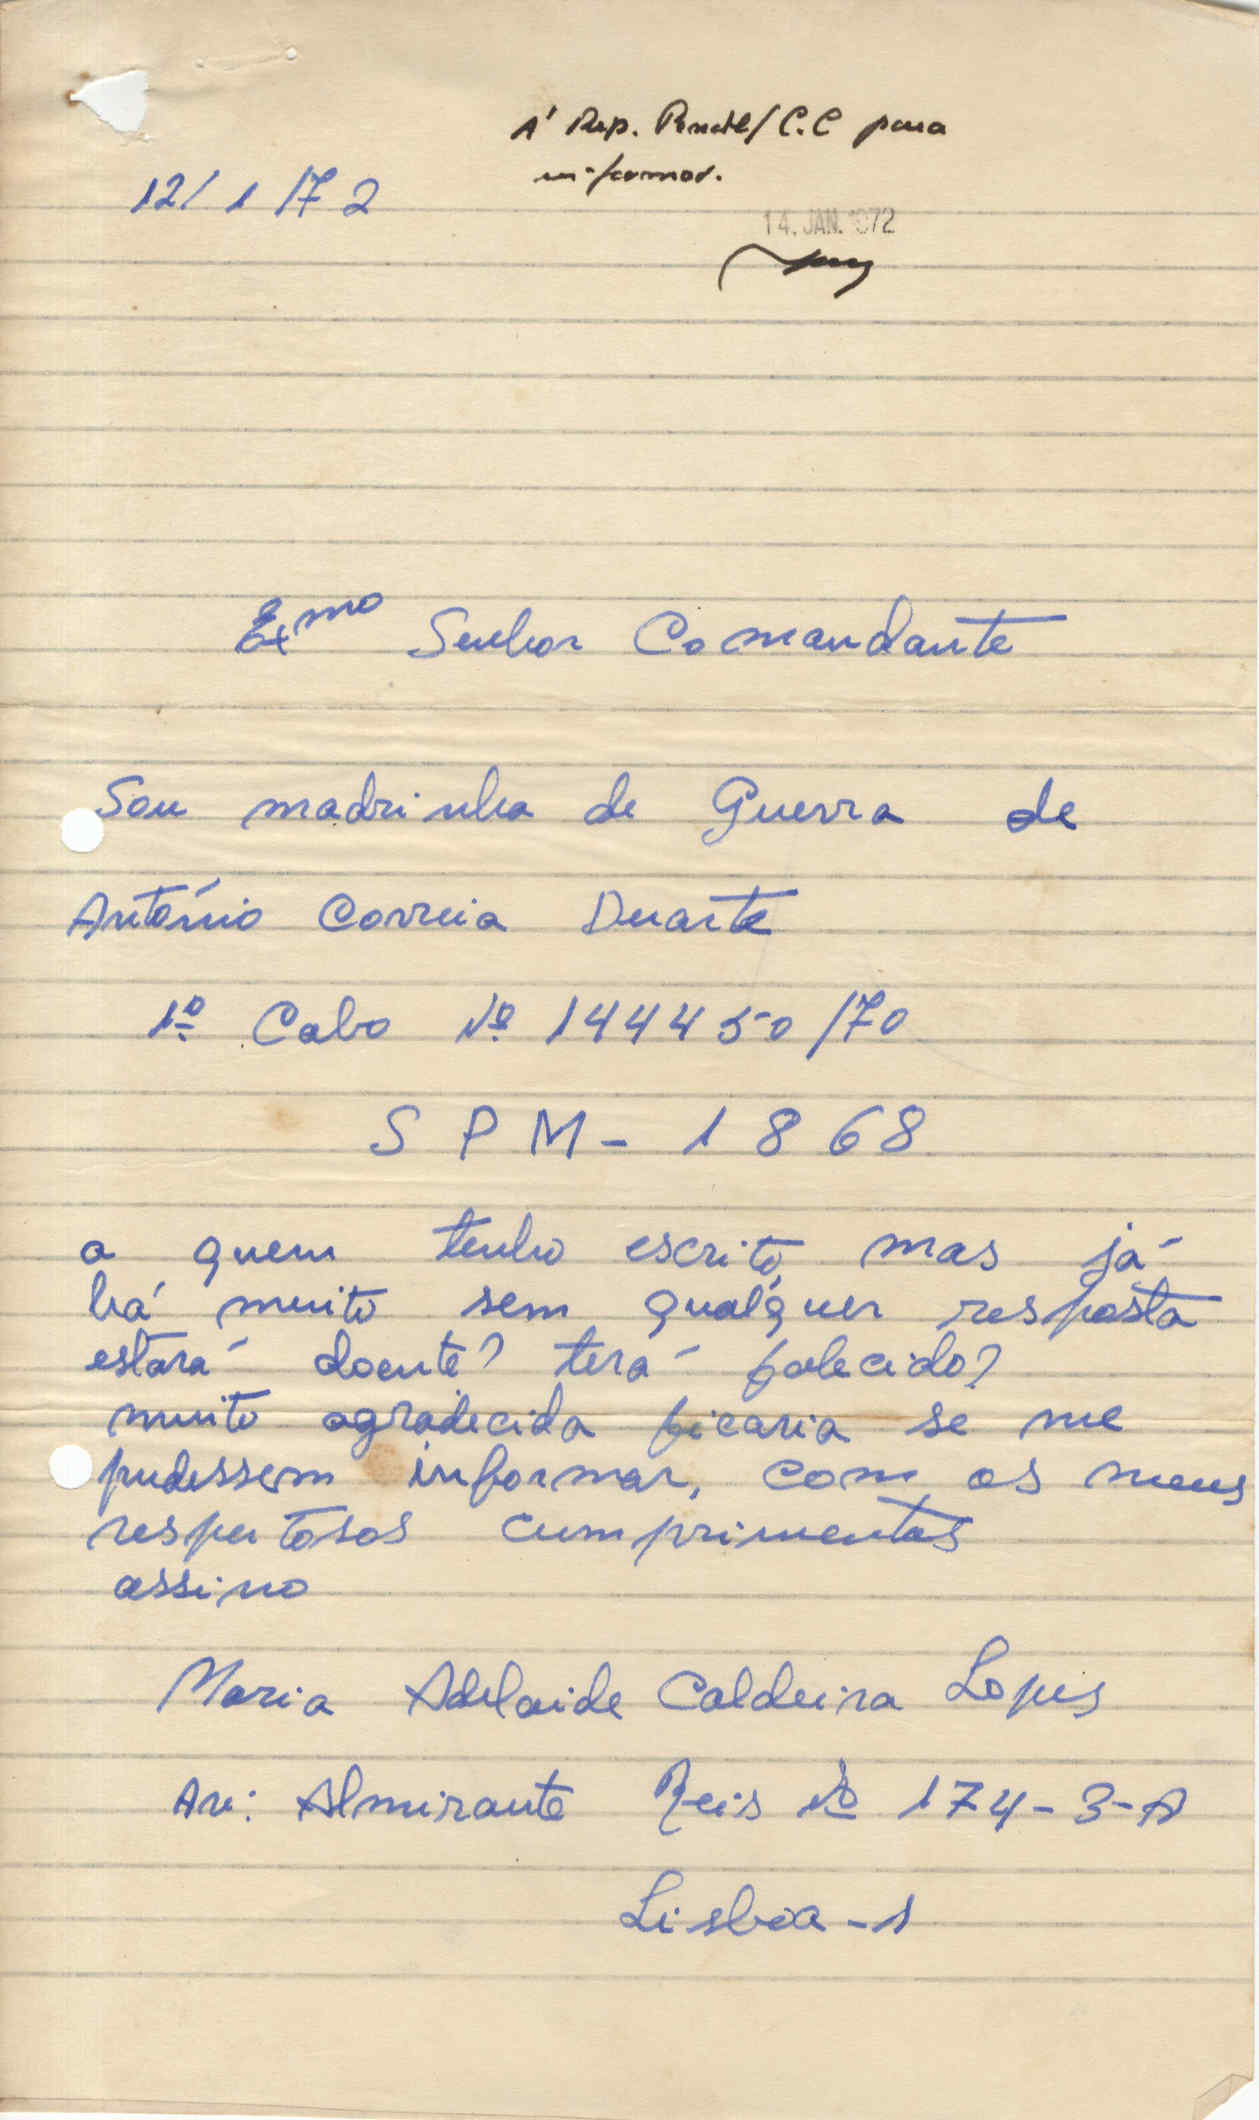 À Rep. C.C para
informar.
12/1/72
14. JAN. 1972
Exmo Senhor Comandante
Sou madrinha de Guerra de
António Correia Duarte
1º Cabo Nº 144450/70
SPM - 1868
a quem tenho escrito, mas já
há muito sem qualquer resposta
estará doente? terá falecido?
muito agradecida ficaria se me
pudessem informar, com os meus
respeitosos cumprimentos
assino
Maria Adelaide Caldeira Lopes
Av: Almirante Reis Nº 174-3-A
Lisboa - 1